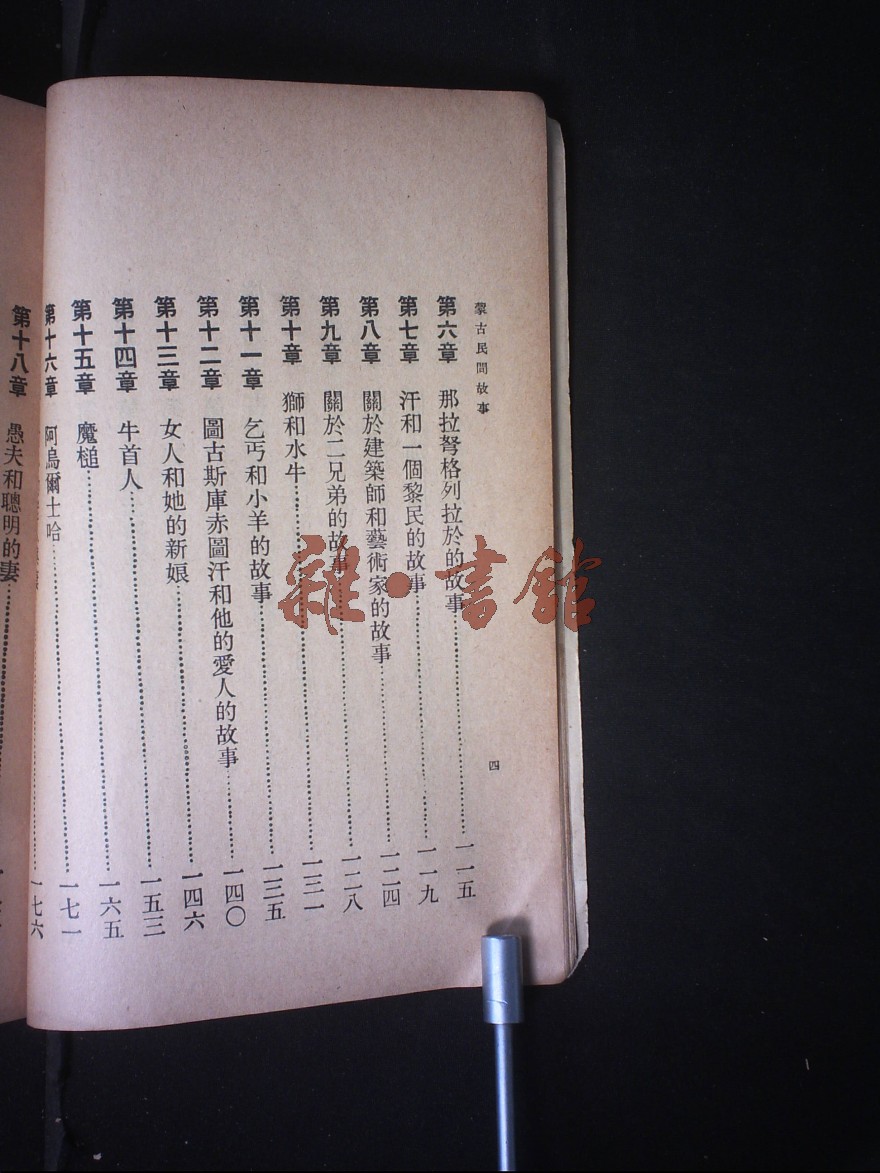 蒙古民間故事
四
第六章 那拉弩格列拉於的故事⋯⋯一一五
第七章 汗和一個黎民的故事⋯⋯一一九
第八章 關於建築師和藝術家的故事⋯⋯一二四
第九章 關於二兄弟的故事⋯⋯一二八
第十章 獅和水牛⋯⋯一三一
第十一章 乞丐和小羊的故事⋯⋯一三五
第十二章 圖古斯庫赤圖汗和他的愛人的故事⋯⋯一四〇
第十三章 女人和她的新娘⋯⋯一四六
第十四章 牛首人⋯⋯一五三
第十五章 魔槌⋯⋯一六五
第十六章 阿烏爾士哈⋯⋯一七一
一七六
第十八章 愚夫和聰明的妻⋯⋯
雜·書館